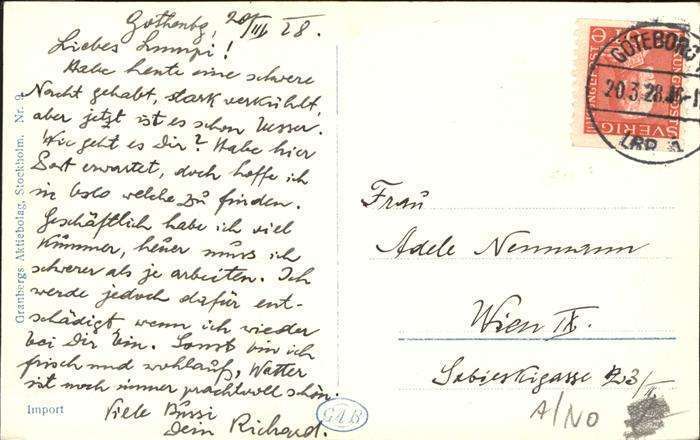 Gothenbg, 20/III 28.
Liebes Lumpi!
Habe heute eine schwere
Nacht gehabt, stark verkühlt,
aber jetzt ist es schon besser.
Wie geht es Dir? Habe hier
Post erwartet, doch hoffe ich
in Oslo welche zu finden.
Geschäftlich habe ich viel
Kummer, heuer muss ich
schwerer als je arbeiten. Ich
werde jedoch dafür ent-
schädigt, wenn ich wieder
bei Dir bin. Sonst bin ich
frisch und wohlauf, Wetter
ist noch immer prachtvoll schön.
Viele Bussi
Dein Richard.
Granbergs Aktiebolag, Stockholm. Nr. 9.
Import
GAB
GÖTEBORG
20.3.28.
LBR
SVERIGE
Frau
Adele Neumann
Wien IX.
Sobieskigasse 23/II
A/NO